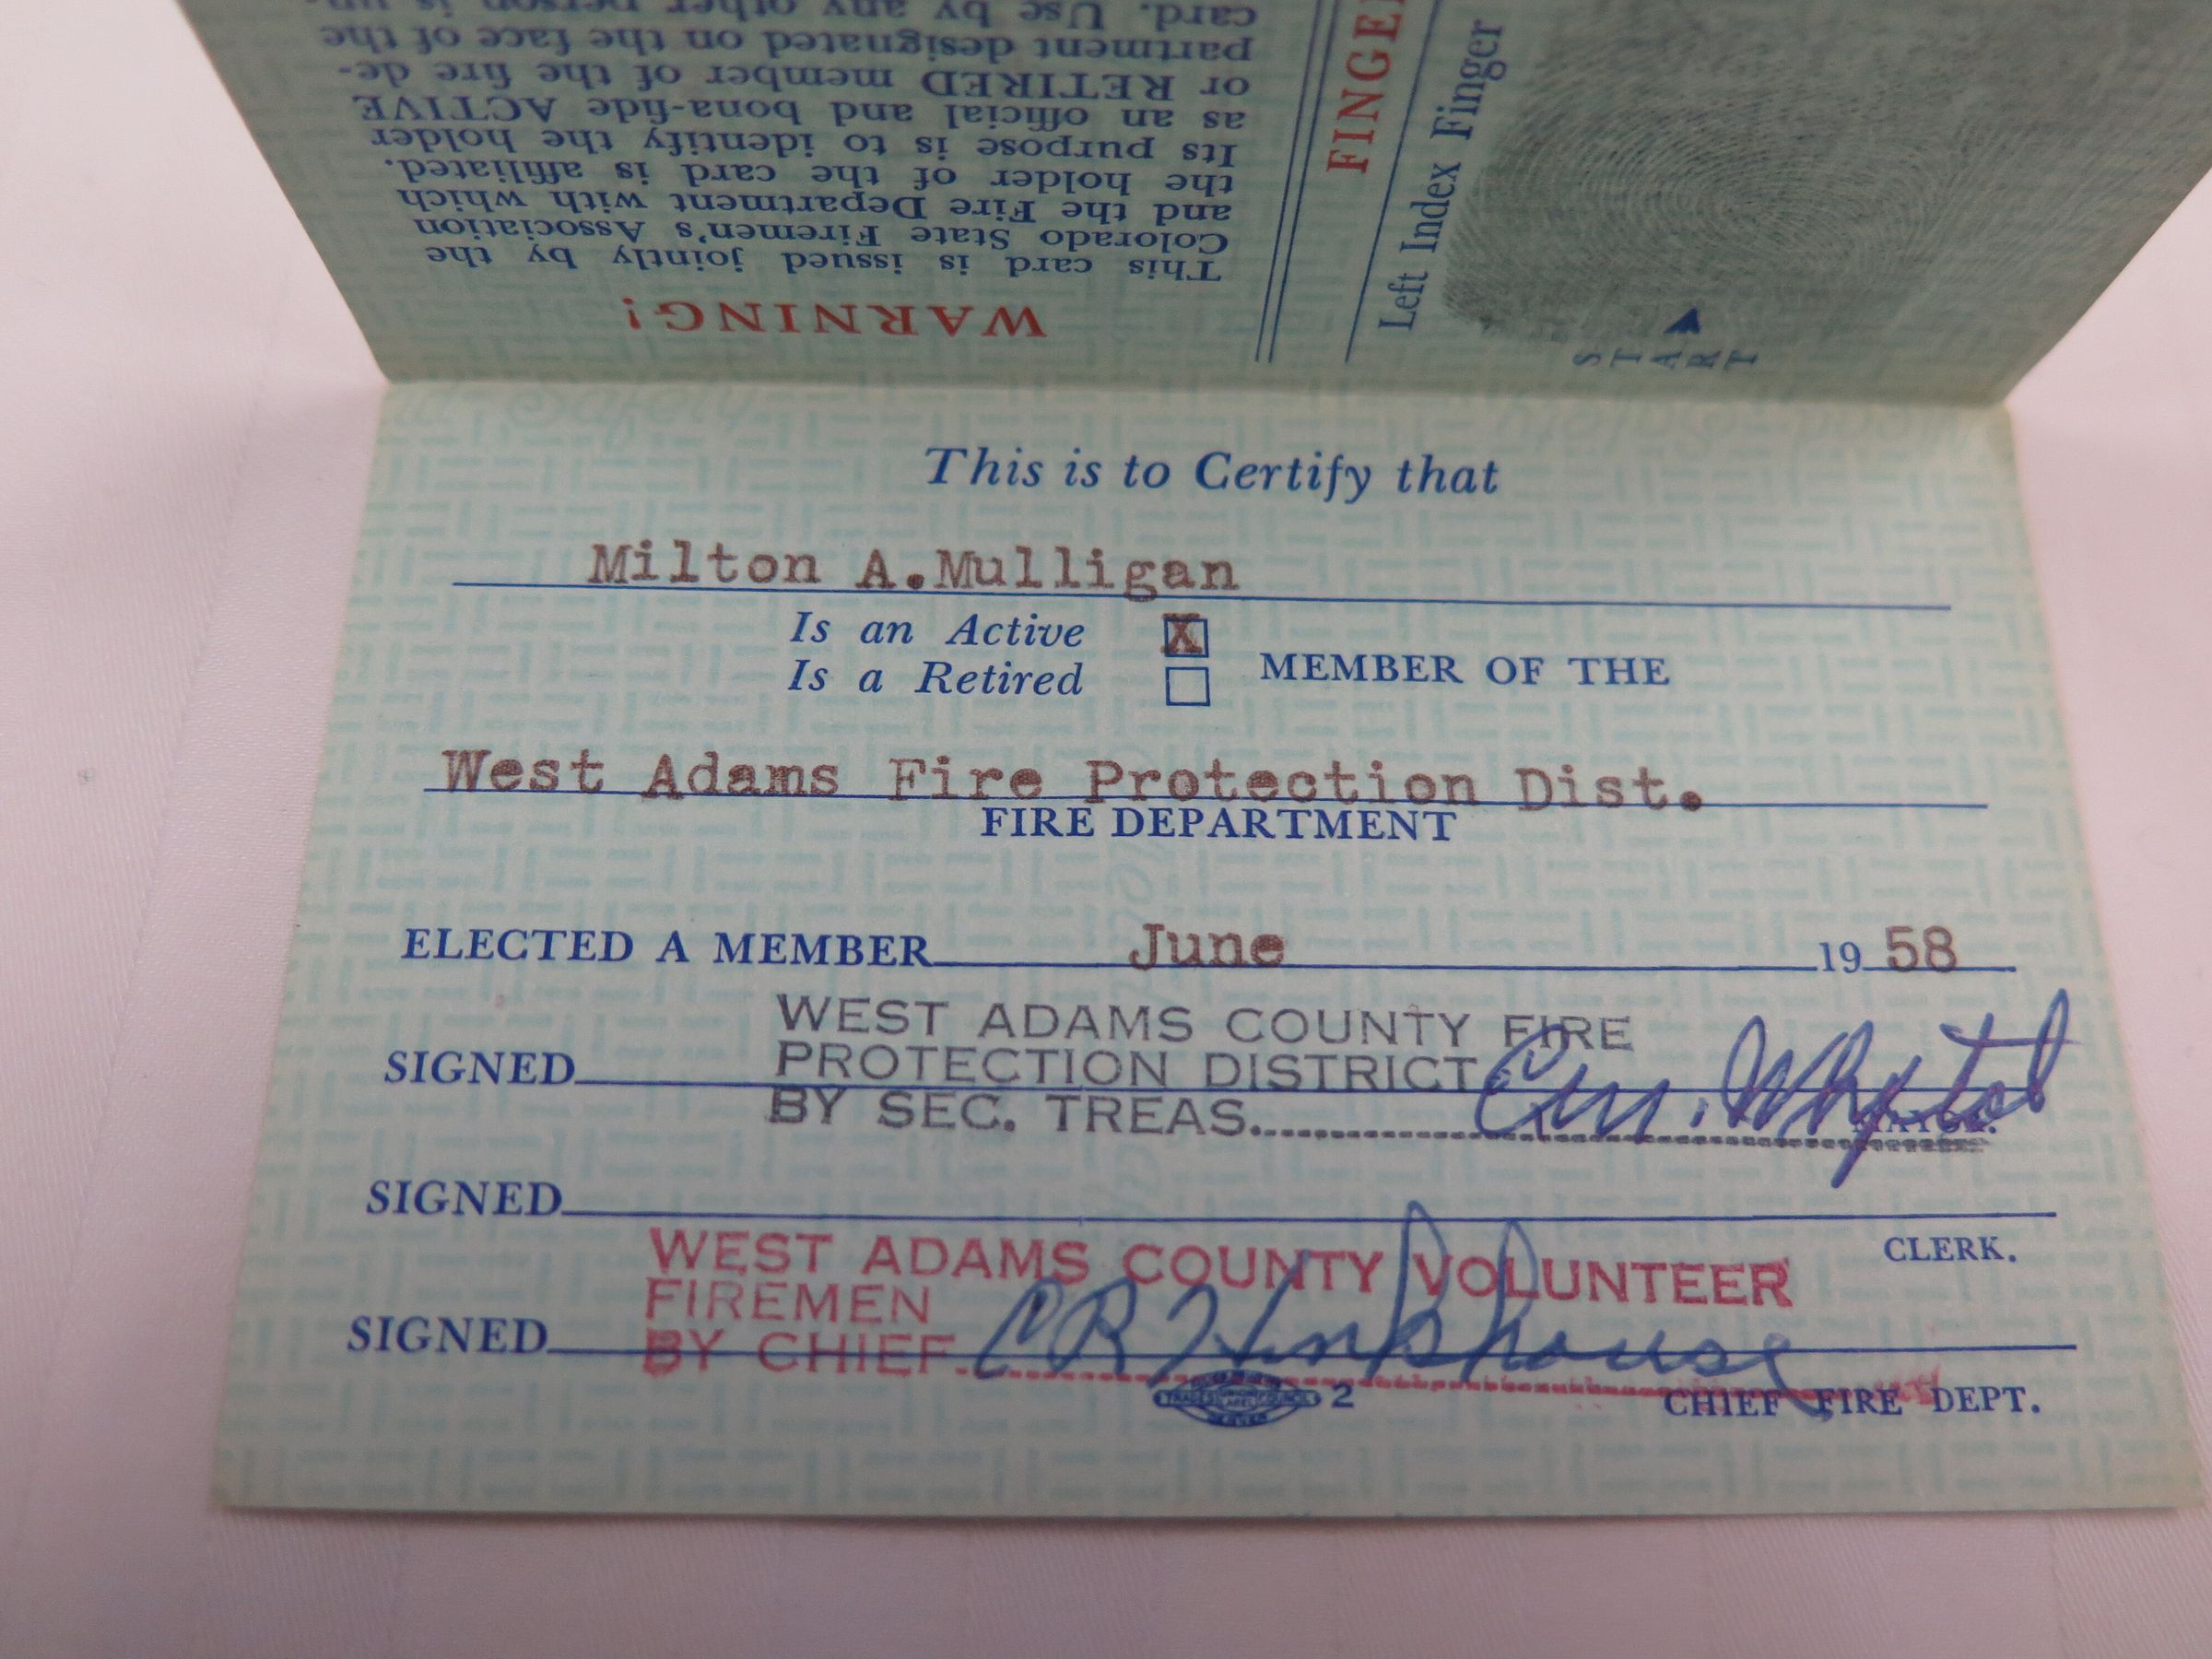 card. Use by any other person is un-
partment designated on the face of the
or RETIRED member of the fire de-
as an official and bona-fide ACTIVE
Its purpose is to identify the holder
the holder of the card is affiliated.
and the Fire Department with which
Colorado State Firemen's Association
This card is issued jointly by the
WARNING!
Left Index Finger
START
This is to Certify that
Milton A.Mulligan
Is an Active X
Is a Retired
MEMBER OF THE
West Adams Fire Protection Dist.
FIRE DEPARTMENT
ELECTED A MEMBER June 19 58
WEST ADAMS COUNTY FIRE
SIGNED PROTECTION DISTRICT
BY SEC. TREAS.
SIGNED
CLERK.
WEST ADAMS COUNTY VOLUNTEER
FIREMEN
SIGNED BY CHIEF C R Hinkhouse
2
CHIEF FIRE DEPT.